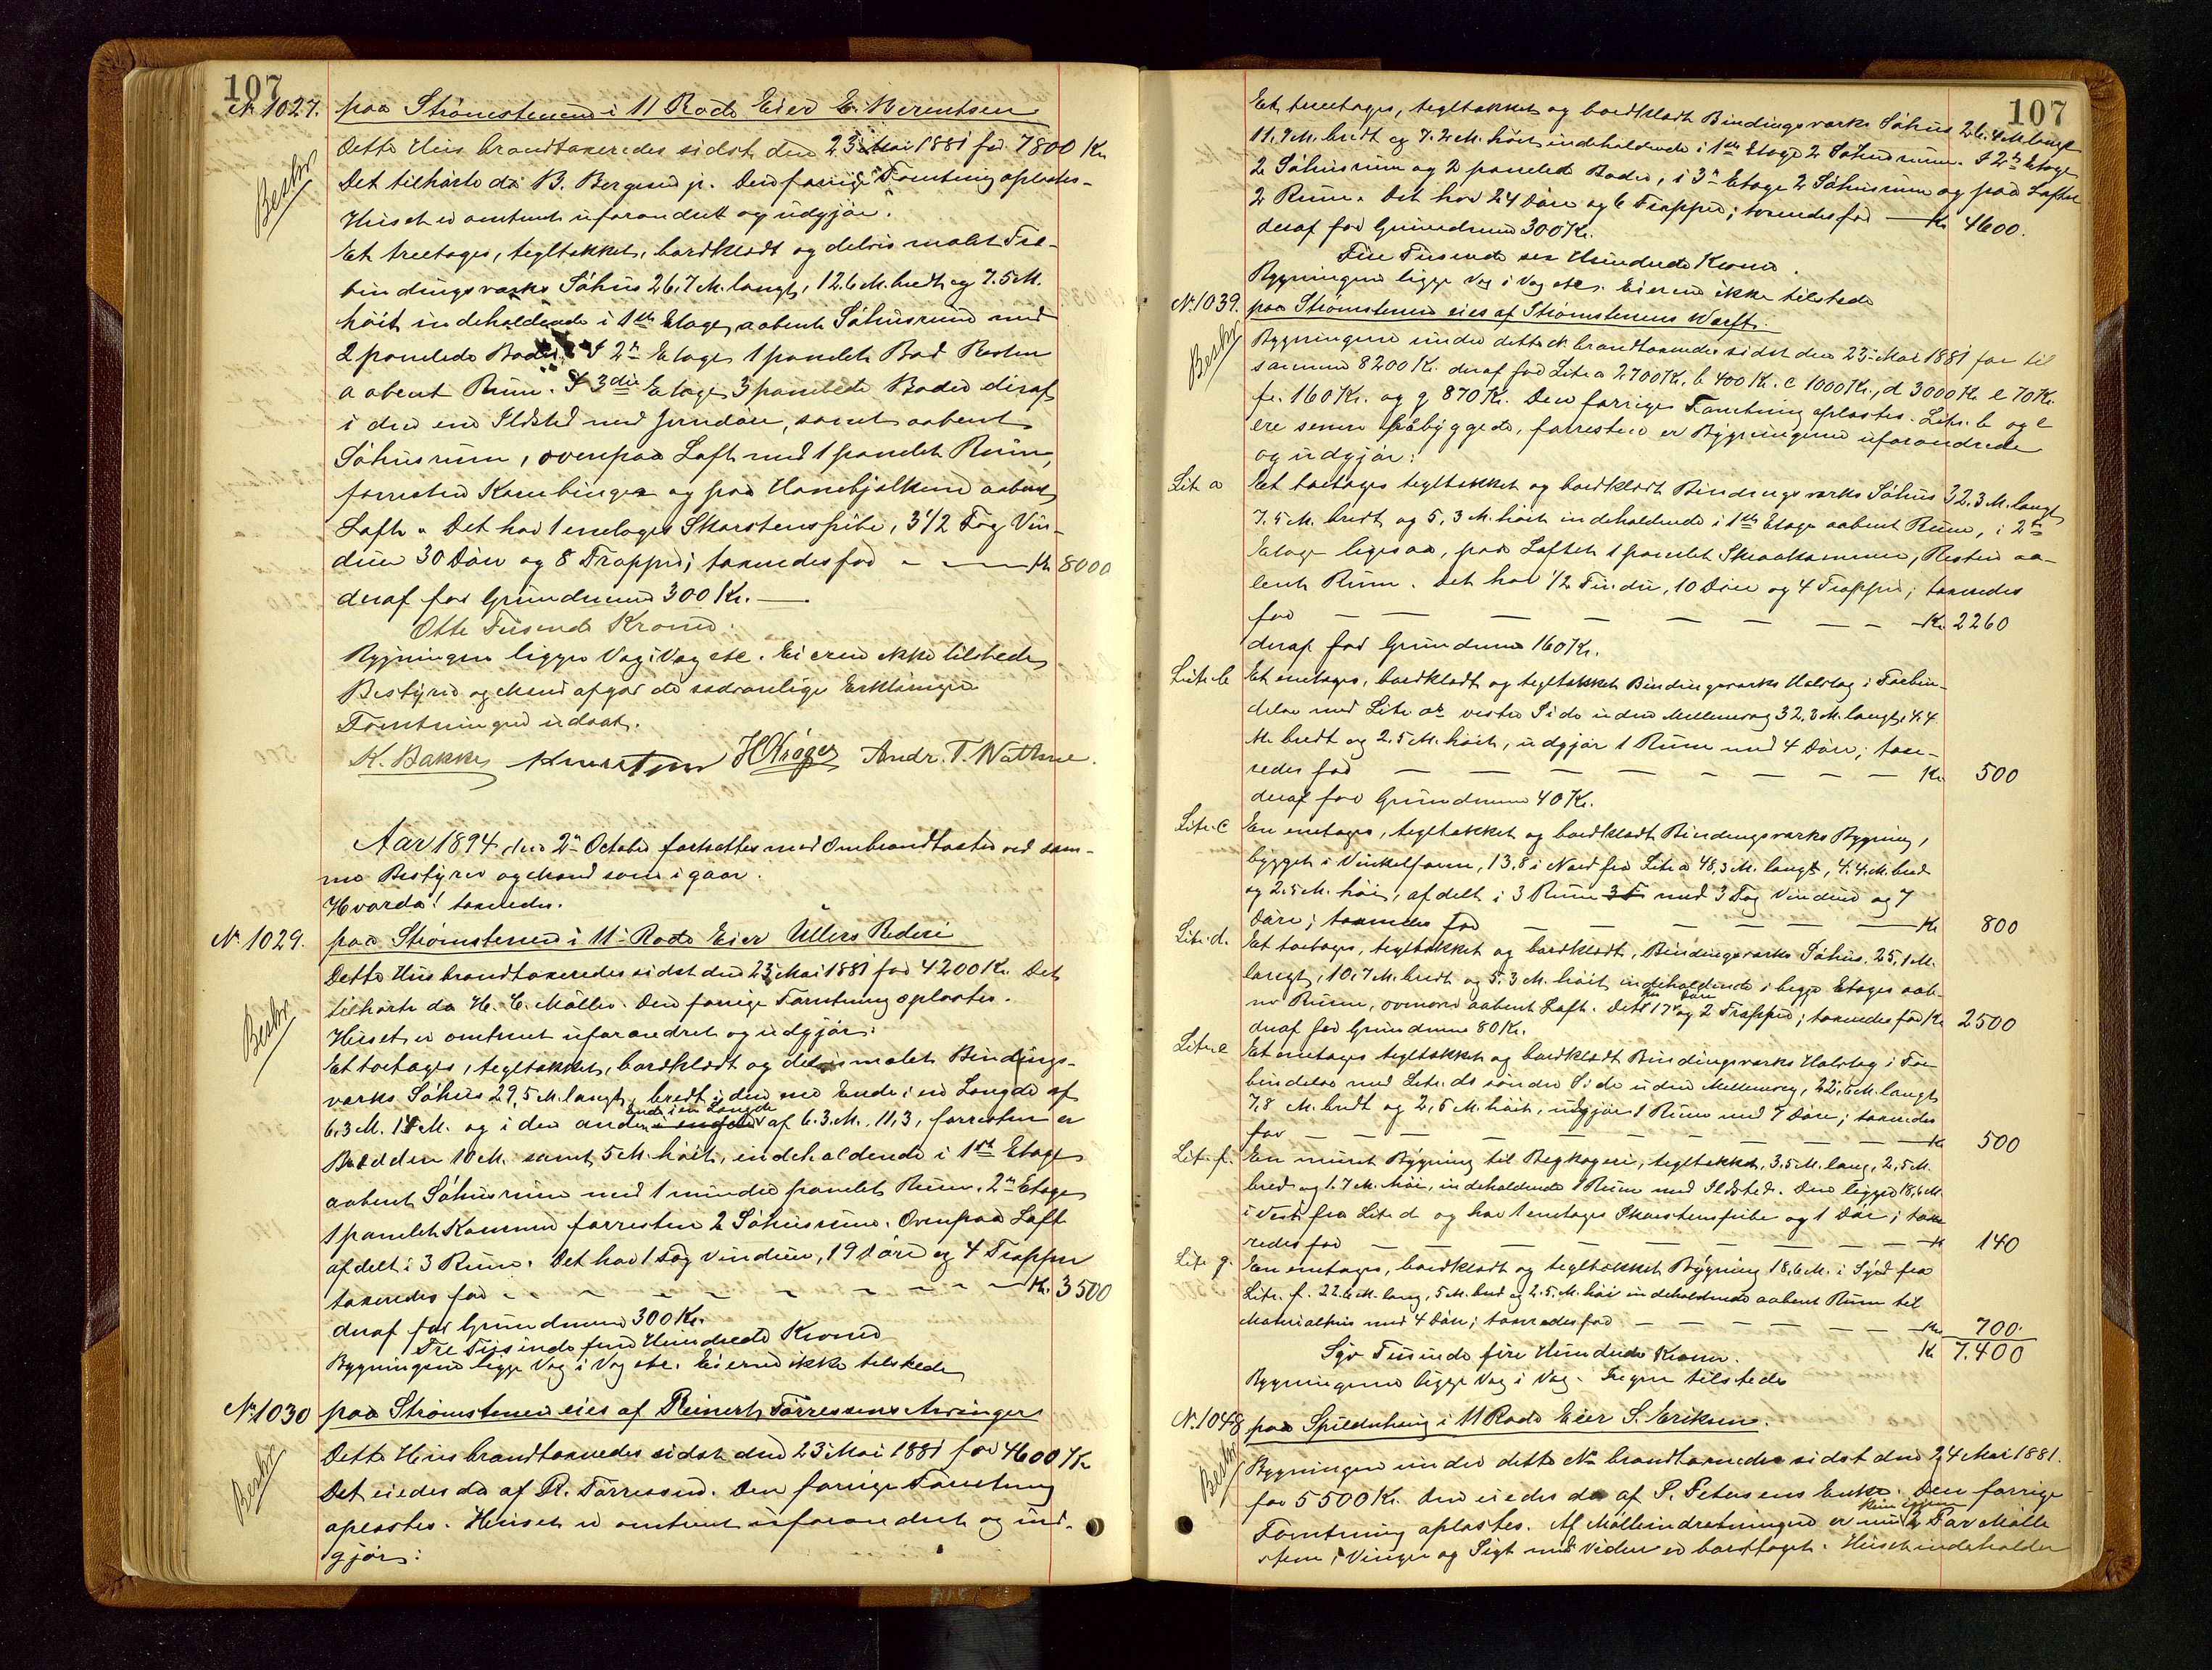 107
No 1027. paa Strømstenen i 11 Rode Eier E. Berentsen
Beskr
Dette Hus brandtaxeredes sidst den 23 Mai 1881 for 7800 Kr.
Det tilhørte da B. Bergesen jr. Den forrige Taxtning oplæstes.
Huset er omtrent uforandret og udgjør:
Et treetages, tegltækket, bordklædt og delvis malet Træ-
bindingsværks Søhus 26,7 M. langt, 12.6 M. bredt og 7.5 M.
høit indeholdende i 1ste Etage aabent Søhusrum med
2 panelede Boder. I 2n Etage 1 panelet Bod Resten
aabent Rum. I 3die Etage 3 panelede Boder deraf
i den ene Ildsted med Jerndøre, samt aabent
Søhusrum, ovenpaa Loft med 1 panelet Rum,
forresten Kornbinger og paa Hanebjelkene aabent
Loft. Det har 1 eenetages Skorstenspibe, 3 1/2 Fag Vin-
duer 30 Døre og 8 Trapper; taxeredes for — Kr. 8000
deraf for Grundmuren 300 Kr.
Otte Tusende Kroner.
Bygningen ligger Væg i Væg etc. Eieren ikke tilstede
Bestyrer og Mænd afgav de sædvanlige Erklæringer
Taxtningen udsat.
K. Bakke H Krøger Andr. T. Wathne.
Aar 1894 den 2n October fortsattes med Ombrandtaxter ved sam-
me Bestyrer og Mænd som i gaar.
Hvorda! taxeredes.
No 1029. paa Strømstenen i 11 Rode Eier Ullers Rederi
Beskr
Dette Hus brandtaxeredes sidst den 23 Mai 1881 for 4200 Kr. Det
tilhørte da H. C. Møller. Den forrige Taxtning oplæstes.
Huset er omtrent uforandret og udgjør:
Et toetages, tegltækket, bordklædt og delvis malet Bindings-
værks Søhus 29,5 M. langt, bredt i den ene Ende i en Længde af
6.3 M. 14 M. og i den anden Ende i en Længde af 6.3. M. 11,3, forresten er
Bredden 10 M. samt 5 M. høit, indeholdende i 1ste Etage
aabent Søhusrum med 1 mindre panelet Rum. 2n Etage
1 panelet Kammer forresten 2 Søhusrum. Ovenpaa Loft
afdelt i 3 Rum. Det har 1 Fag Vinduer, 19 Døre og 4 Trapper
taxeredes for — Kr. 3500
deraf for Grundmuren 300 Kr.
Tre Tusinde fem Hundrede Kroner
Bygningerne ligge Væg i Væg etc. Eierne ikke tilstede
No 1030 paa Strømstenen eies af Reinert Tørressens Arvinger
Beskr
Dette Hus brandtaxeredes sidst den 23 Mai 1881 for 4600 Kr
Det eiedes da af R. Tørressen. Den forrige Taxtning
oplæstes. Huset er omtrent uforandret og ud-
gjør:
107
Et treetages, tegltækket og bordklædt Bindingsværks Søhus 26.4 M. langt
11,9 M. bredt og 7.2 M. høit indeholdende i 1ste Etage 2 Søhusrum. I 2n Etage
2 Søhusrum og 2 panelede Boder, i 3n Etage 2 Søhusrum og paa Loftet
2 Rum. Det har 24 Døre og 6 Trapper; taxeredes for — Kr 4600.
deraf for Grundmur 300 Kr.
Fire Tusende sex Hundrede Kroner.
Bygningerne ligge Væg i Væg etc. Eieren ikke tilstede
No 1039. paa Strømstenen eies af Strømstenens Værft.
Beskr
Bygningerne under dette No brandtaxeredes sidst den 23 Mai 1881 for til
sammen 8200 Kr. deraf for Litr a 2700 Kr, b 400 Kr. c 1000 Kr., d 3000 Kr. e 70 Kr.
f. 160 Kr. og g 870 Kr. Den forrige Taxtning oplæstes. Litr. b og e
ere senere paabyggede, forresten er Bygningerne uforandrede
og udgjør:
Litr a Et toetages tegltækket og bordklædt Bindingsværks Søhus 32,3 M. langt
7.5 M. bredt og 5,3 M. høit indeholdende i 1ste Etage aabent Rum, i 2n
Etage ligesaa, paa Loftet 1 panelet Skraakammer, Resten aa-
bent Rum. Det har 1/2 Vindu, 10 Døre og 4 Trapper; taxeredes
for — Kr 2260
deraf for Grundmur 160 Kr.
Litr. b Et enetages, bordklædt og tegltækket Bindingsværks Halvtag i Forbin-
delse med Litr. as vestre Side uden Mellemvæg 32,3 M. langt, 4,4
M. bredt og 2.5 M. høit, udgjør 1 Rum med 4 Døre; taxe-
redes for — Kr. 500
deraf for Grundmur 40 Kr.
Litr. c En enetages, tegltækket og bordklædt Bindingsværks Bygning,
bygget i Vinkelform, 13,8 i Nord fra Litr a 48,3 M. langt, 4.4 M. bred
og 2.5 M. høi, afdelt i 3 Rum med 3 Fag Vinduer og 7
Døre; taxeredes for — Kr 800
Litr. d. Et toetages, tegltækket og bordklædt, Bindingsværks Søhus, 25,1 M.
langt, 10,7 M. bredt og 5.3 M. høit, indeholdende i begge Etager aab-
ne Rum, ovenover aabent Loft. Det har 17 Døre og 2 Trapper; taxeredes for Kr 2500
deraf for Grundmur 80 Kr.
Litr. e Et enetages tegltækket og bordklædt Bindingsværks Halvtag i For-
bindelse med Litr. ds søndre Side uden Mellemvæg, 22,6 M. langt
7,8 M. bredt og 2,5 M. høit, udgjør 1 Rum med 7 Døre; taxeredes
for — Kr 500
Litr. f. En muret Bygning til Begkogeri, tegltækket, 3,5 M. lang, 2,5 M.
bred og 1.7 M. høi, indeholdende 1 Rum med Ildsted. Den ligger 18,6 M.
i Vest fra Litr d og har 1 enetages Skorstenspibe og 1 Dør; taxe
redes for — Kr 140
Litr g. En enetages, bordklædt og tegltækket Bygning 18,6 M. i Syd fra
Litr. f. 22.6 M. lang, 5 M. bred og 2.5 M. høi indeholdende aabent Rum til
Materialhus med 4 Døre; taxeredes for — Kr 700.
Syv Tusinde fire Hundrede Kroner. Kr 7.400
Bygningerne ligge Væg i Væg. Ingen tilstede
No 1048 paa Spilderhaug i 11 Rode Eier S. Eriksen.
Beskr
Bygningen under dette No brandtaxeredes sidst den 24 Mai 1881.
for 5500 Kr. Den eiedes da af P. Petersens Enke. Den forrige
Taxtning oplæstes. Af Mølleindretningen er nu kun igjen 2 Par Mølle
stene, Vinger og Sigt med Videre er borttaget. Huset indeholder